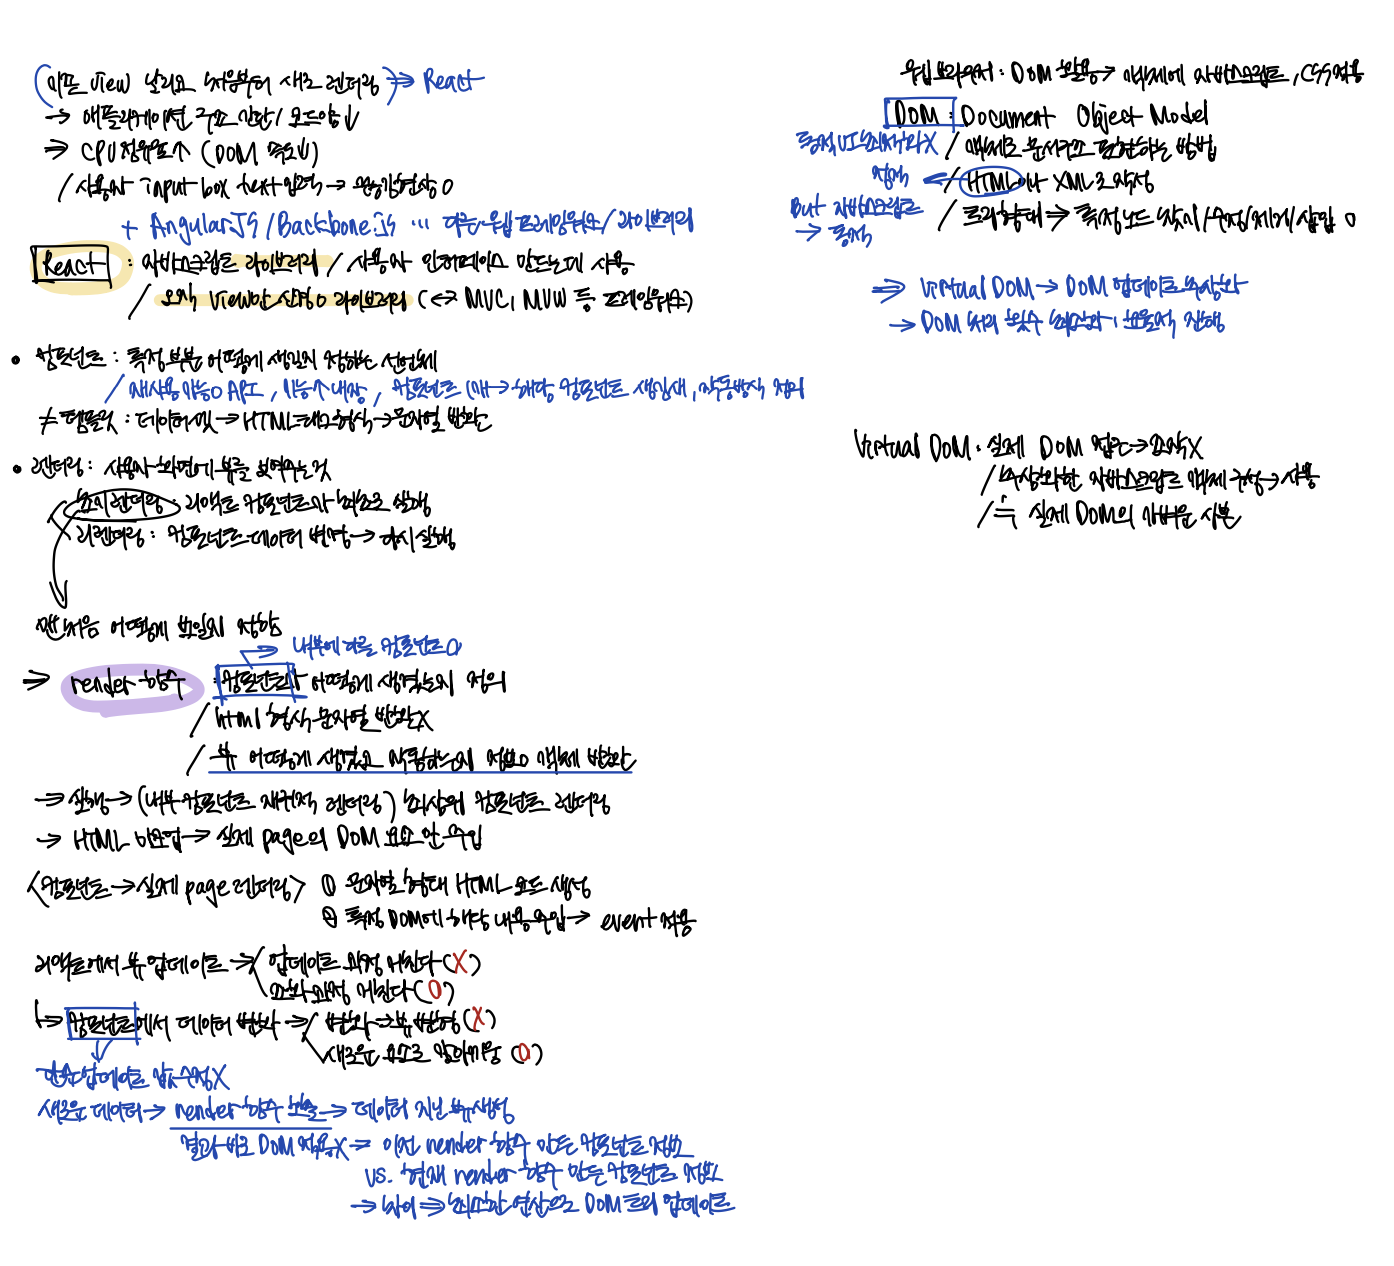 기존 view 날리고 처음부터 새로 렌더링 ⇒ React
→ 애플리케이션 구조 간단/ 코드양↓
⇒ CPU 점유율↑ (DOM 속도↓)
/ 사용자 input box text 입력 → 끊김현상 O
+ AngularJS / Backbone.js … 다른 웹 프레임워크/ 라이브러리
React : 자바스크립트 라이브러리 / 사용자 인터페이스 만드는데 사용
/ 오직 View만 신경 O 라이브러리 (↔ MVC, MVW 등 프레임워크)
• 컴포넌트 : 특정 부분 어떻게 생길지 정하는 선언체
/ 재사용 가능 O API, 기능↑ 내장, 컴포넌트 1개 → 해당 컴포넌트 생김새, 작동방식 정의
≠ 템플릿 : 데이터셋 → HTML 태그 형식 → 문자열 반환
• 렌더링 : 사용자 화면에 뷰를 보여주는 것
초기 렌더링 : 리액트 컴포넌트가 최초로 실행
리렌더링 : 컴포넌트 데이터 변경 → 다시 실행
맨 처음 어떻게 보일지 정함
→ 내부에 다른 컴포넌트 O
⇒ render 함수 : 컴포넌트가 어떻게 생겼는지 정의
/ html 형식 문자열 반환 X
/ 뷰 어떻게 생겼고 작동하는지 정보 O 객체 반환
⇒ 실행 → (내부 컴포넌트 재귀적 렌더링) 최상위 컴포넌트 렌더링
→ HTML 마크업 → 실제 page의 DOM 요소 안 주입
<컴포넌트 → 실제 page 렌더링> ① 문자열 형태 HTML 코드 생성
② 특정 DOM에 해당 내용 주입 → event 적용
리액트에서 뷰 업데이트 ⇒ 업데이트 과정 거친다 (X)
조화 과정 거친다 (O)
↳ 컴포넌트에서 데이터 변화 → 변화 → 뷰 변형 (X)
새로운 요소로 갈아끼움 (O)
단순 업데이트 값 수정 X
새로운 데이터 → render 함수 호출 → 데이터 지닌 뷰 생성
결과 바로 DOM 적용 X → 이전 render 함수 만든 컴포넌트 정보
vs. 현재 render 함수 만든 컴포넌트 정보
→ 차이 ⇒ 최소한 연산으로 DOM 트리 업데이트
웹 브라우저 : DOM 활용 → 객체에 자바스크립트, CSS 적용
DOM : Document Object Model
동적 UI 최적화 X / 객체로 문서구조 표현하는 방법
정적 ← / HTML이나 XML로 작성
But 자바스크립트 → 동적
/ 트리 형태 ⇒ 특정 노드 찾기/ 수정/ 제거/ 삽입 O
⇒ Virtual DOM → DOM 업데이트 추상화
→ DOM 처리 횟수 최소화, 효율적 진행
Virtual DOM : 실제 DOM 접근 → 조작 X
/ 추상화한 자바스크립트 객체 구성 → 사용
/ ≒ 실제 DOM의 가벼운 사본